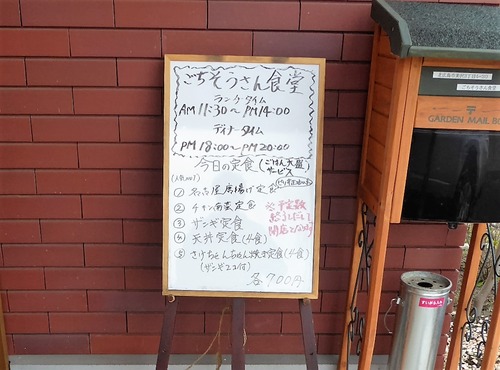 ごちそうさん食堂
ランチタイム
AM 11:30～PM 14:00
ディナータイム
PM 18:00～PM 20:00
今日の定食(ごはん大盛サービス
(人気No1)
① 名古屋風揚げ定食
② チキン南蛮定食
③ ザンギ定食
④ 天丼定食(4食)
⑤ さけちゃんちゃん焼き定食(4食)
(ザンギ2コ付)
※予定数
終了しだい
閉店となります
各700円
ごちそうさん食堂
GARDEN MAIL BO
すいがら入れ